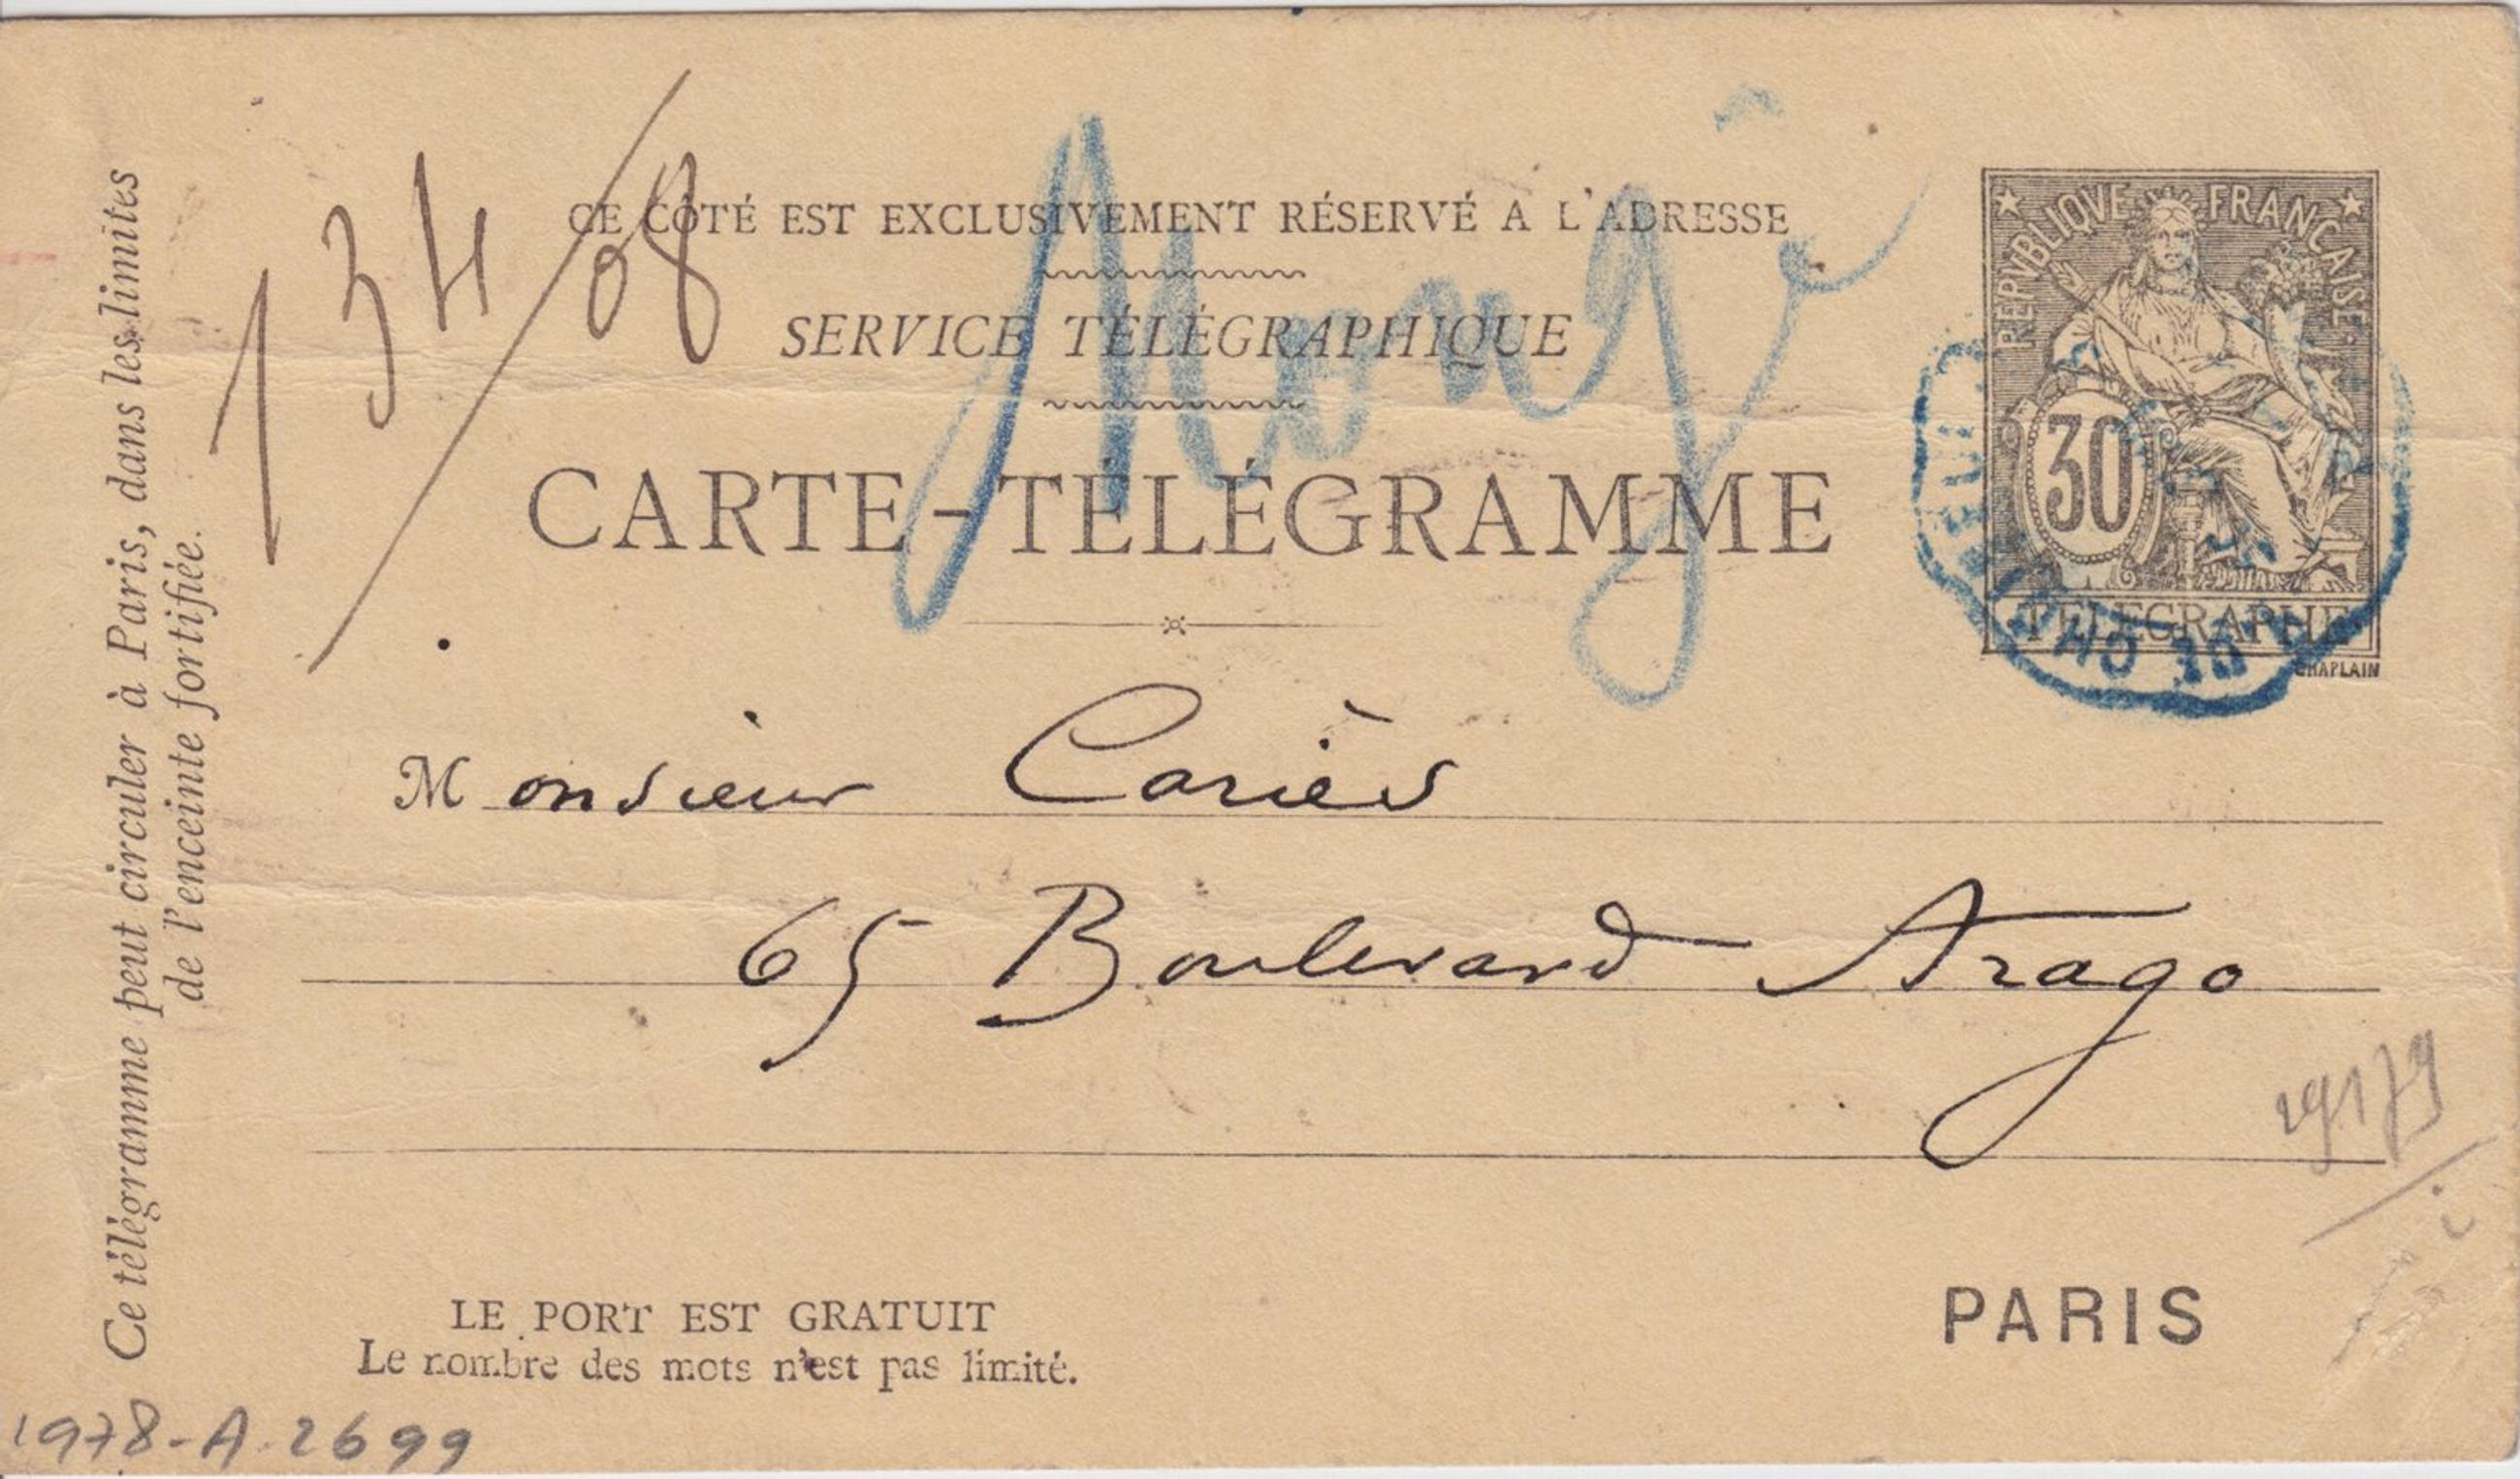 Ce télégramme peut circuler à Paris, dans les limites
de l'enceinte fortifiée.
134/08
CE CÔTÉ EST EXCLUSIVEMENT RÉSERVÉ A L'ADRESSE
SERVICE TÉLÉGRAPHIQUE
CARTE-TÉLÉGRAMME
REPVBLIQVE FRANCAISE
30
TELEGRAPHE
CHAPLAIN
Monsieur Cariès
65 Boulevard Arago
LE PORT EST GRATUIT
Le nombre des mots n'est pas limité.
PARIS
1978-A-2699